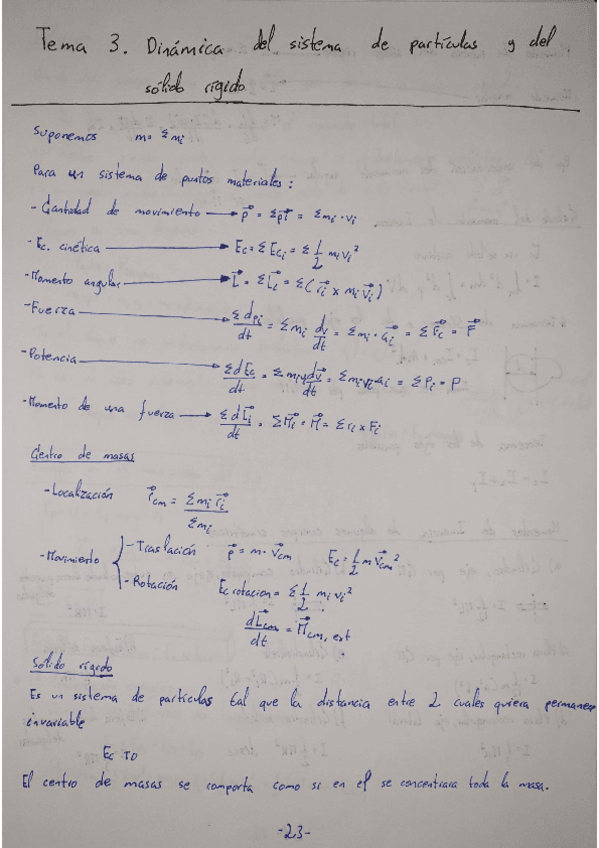 Tema 3. Dinámica del sistema de partículas y del
sólido rígido
Suponemos m = Σmi
Para un sistema de puntos materiales:
- Cantidad de movimiento → p⃗ = Σp⃗i = Σmi·vi
- Ec. cinética → Ec = ΣEci = Σ 1/2 mivi²
- Momento angular → L⃗ = ΣL⃗i = Σ(r⃗i x miv⃗i)
- Fuerza → Σdp⃗i/dt = Σmi dv⃗/dt = Σmi·a⃗i = ΣF⃗i = F⃗
- Potencia → ΣdEc/dt = Σmivi dv⃗/dt = Σmiviai = ΣPi = P
- Momento de una fuerza → ΣdL⃗i/dt = ΣM⃗i = M⃗ = Σri x Fi
Centro de masas
- Localización r⃗cm = Σmir⃗i/Σmi
- Movimiento { - Traslación p⃗ = m·v⃗cm Ec = 1/2 mv⃗cm²
- Rotación Ec rotacion = Σ 1/2 mivi²
dL⃗cm/dt = M⃗cm, ext
Sólido rígido
Es un sistema de partículas tal que la distancia entre 2 cuales quiera permanece
invariable
Ec TO
El centro de masas se comporta como si en el se concentrara toda la masa.
-23-